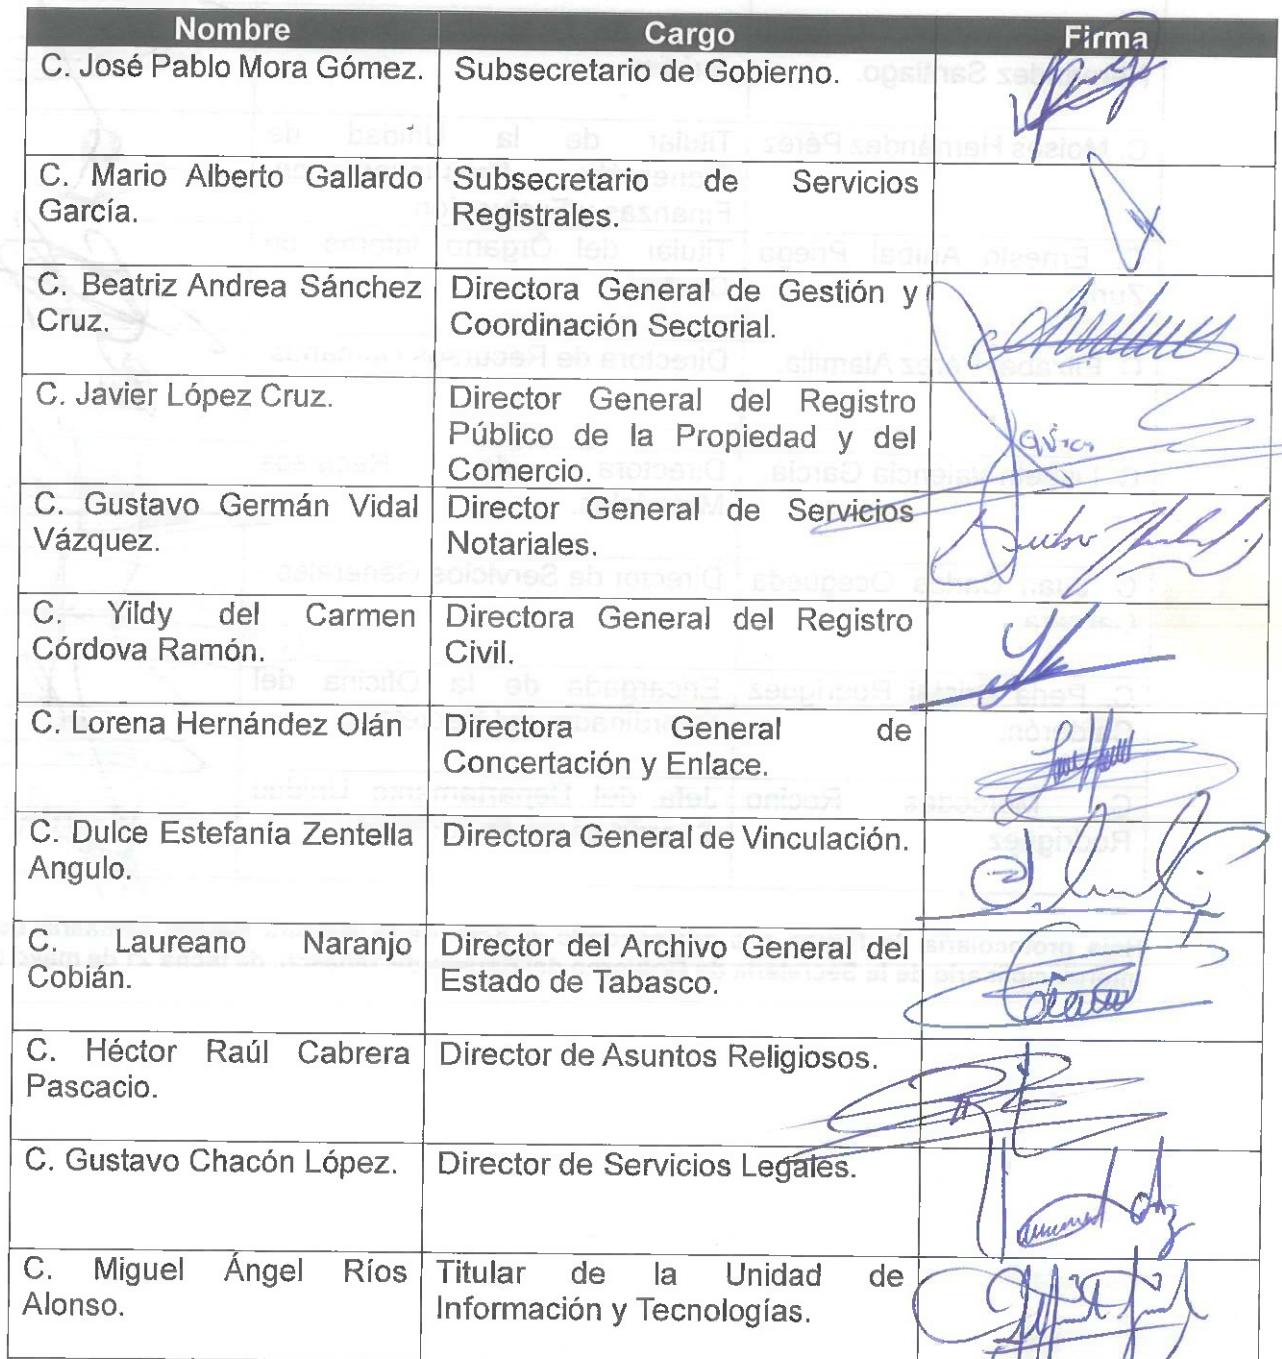 Nombre Cargo Firma
C. José Pablo Mora Gómez. Subsecretario de Gobierno.
C. Mario Alberto Gallardo Subsecretario de Servicios
García. Registrales.
C. Beatriz Andrea Sánchez Directora General de Gestión y
Cruz. Coordinación Sectorial.
C. Javier López Cruz. Director General del Registro
Público de la Propiedad y del
Comercio.
C. Gustavo Germán Vidal Director General de Servicios
Vázquez. Notariales.
C. Yildy del Carmen Directora General del Registro
Córdova Ramón. Civil.
C. Lorena Hernández Olán Directora General de
Concertación y Enlace.
C. Dulce Estefanía Zentella Directora General de Vinculación.
Angulo.
C. Laureano Naranjo Director del Archivo General del
Cobián. Estado de Tabasco.
C. Héctor Raúl Cabrera Director de Asuntos Religiosos.
Pascacio.
C. Gustavo Chacón López. Director de Servicios Legales.
C. Miguel Ángel Ríos Titular de la Unidad de
Alonso. Información y Tecnologías.